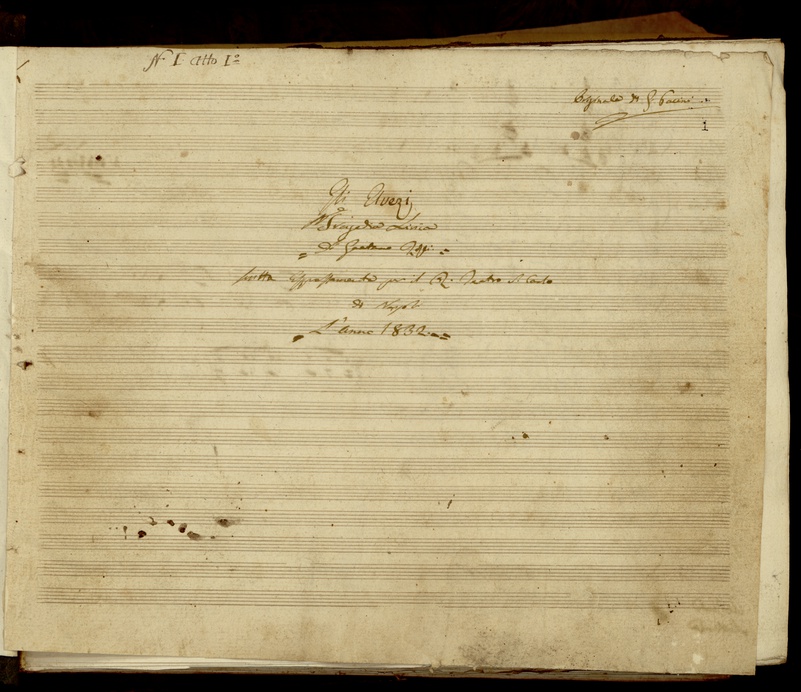 N. I Atto Iº
Originale di G. Pacini
1
Gli Elvezj
Tragedia Lirica
Di Gaetano Rossi
scritta Espressamente per il R. Teatro S. Carlo
di Napoli
L'anno 1832.